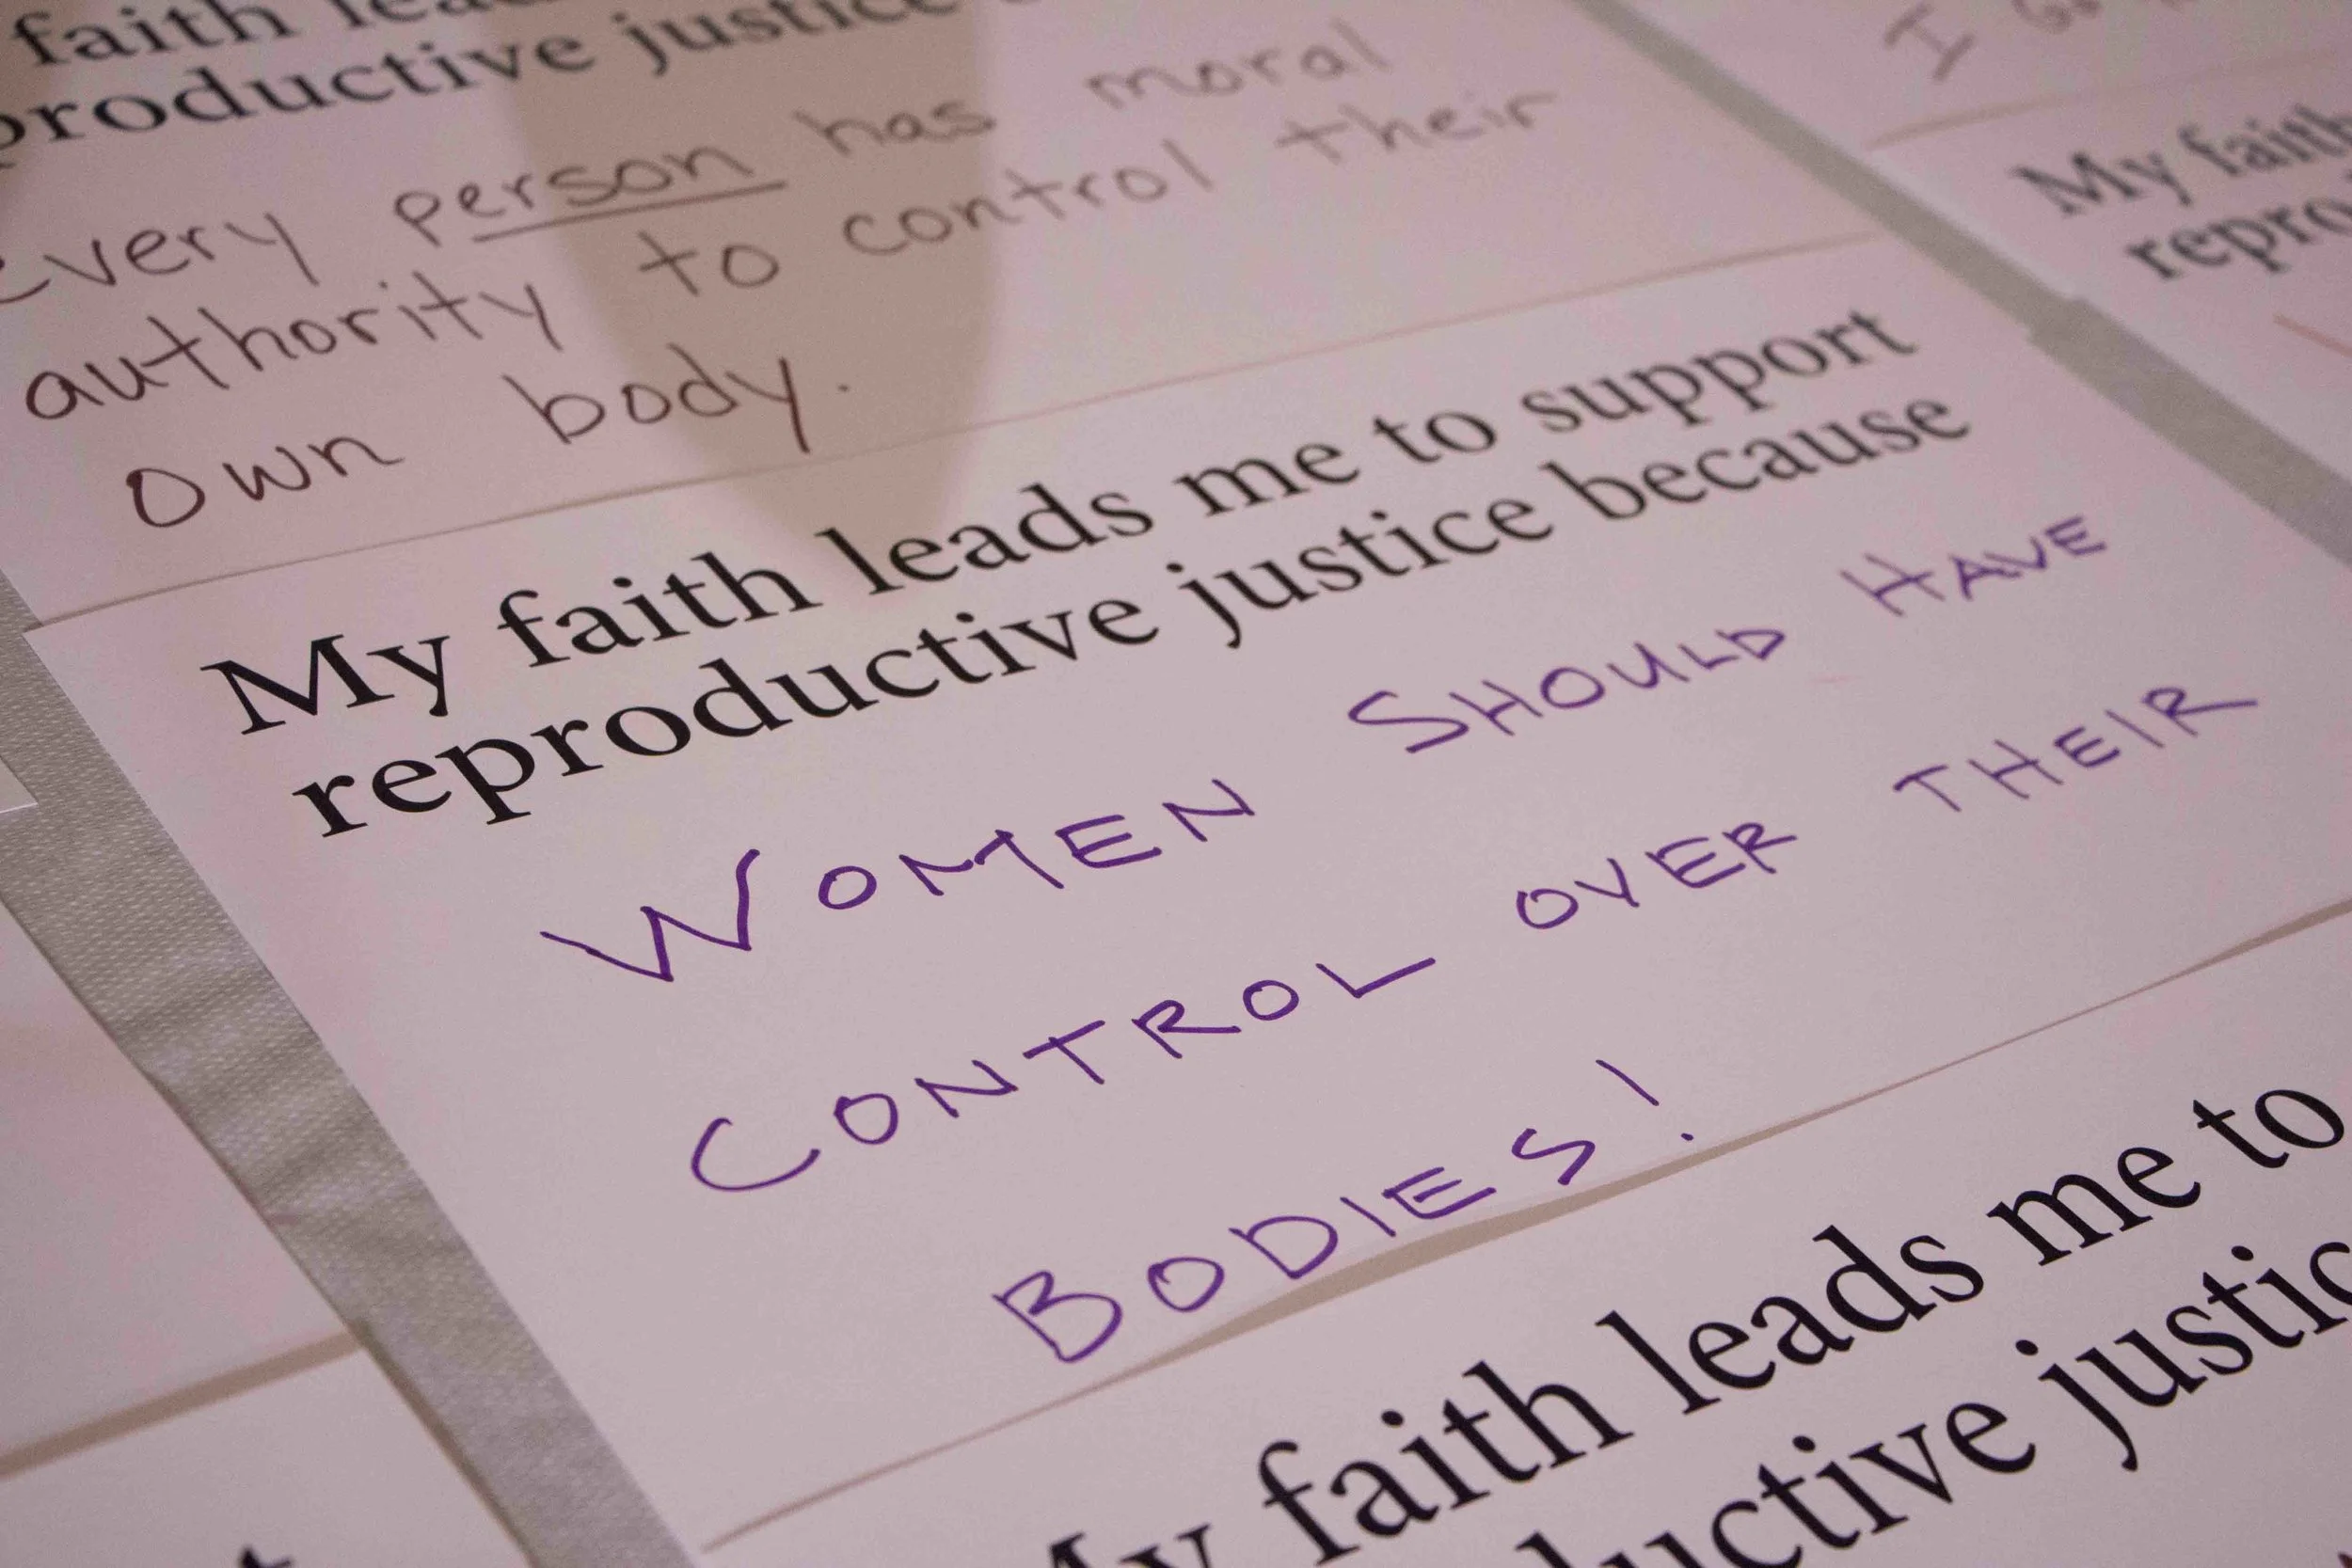 faith
productive justice
every person has moral
authority to control their
own body.
I
My faith
My faith leads me to support
reproductive justice because
WOMEN SHOULD HAVE
CONTROL OVER THEIR
BODIES!
My faith leads me to